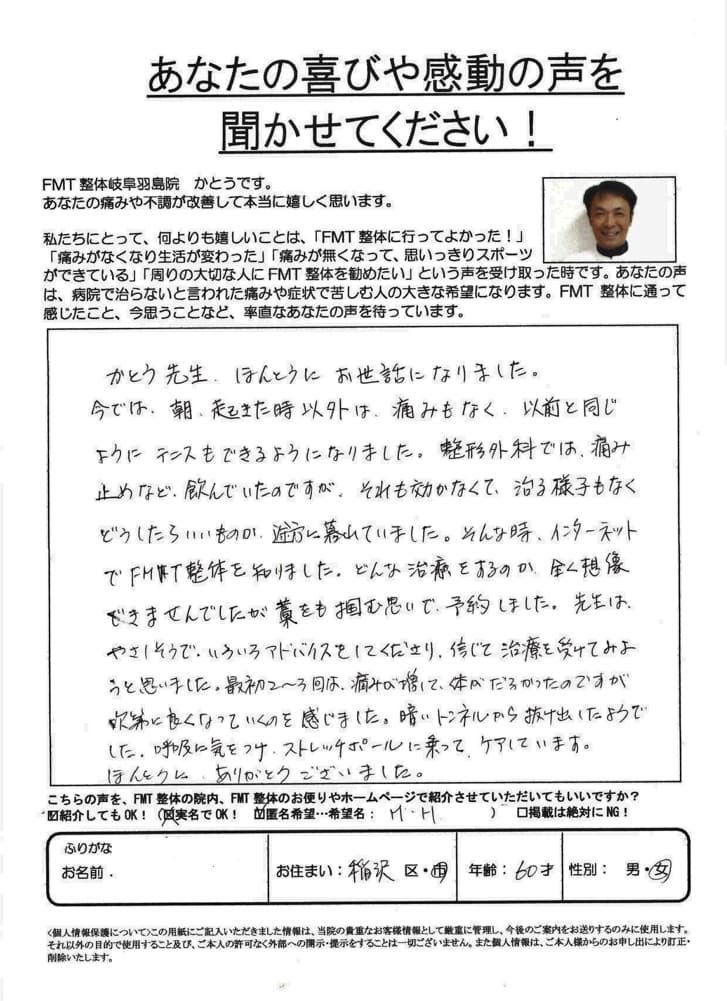 あなたの喜びや感動の声を
聞かせてください！
FMT 整体岐阜羽島院　かとうです。
あなたの痛みや不調が改善して本当に嬉しく思います。
私たちにとって、何よりも嬉しいことは、「FMT整体に行ってよかった！」
「痛みがなくなり生活が変わった」「痛みが無くなって、思いっきりスポーツ
ができている」「周りの大切な人にFMT整体を勧めたい」という声を受け取った時です。あなたの声
は、病院で治らないと言われた痛みや症状で苦しむ人の大きな希望になります。FMT 整体に通って
感じたこと、今思うことなど、率直なあなたの声を待っています。
かとう先生、ほんとうに お世話になりました。
今では、朝、起きた時以外は、痛みもなく、以前と同じ
ように テニスもできるようになりました。整形外科では、痛み
止めなど、飲んでいたのですが、それも効かなくて、治る様子もなく
どうしたらいいものか、途方に暮れていました。そんな時、インターネット
でFMT整体を知りました。どんな治療をするのか、全く想像
できませんでしたが藁をも掴む思いで、予約しました。先生は、
やさしそうで、いろいろアドバイスをしてくださり、信じて治療を受けてみよ
うと思いました。最初2～3回は、痛みが増して、体がだるかったのですが
次第に良くなっていくのを感じました。暗いトンネルから抜け出したようで
した。呼吸に気をつけ、ストレッチポールに乗って、ケアしています。
ほんとうに、ありがとうございました。
こちらの声を、FMT整体の院内、FMT整体のお便りやホームページで紹介させていただいてもいいですか？
☑紹介してもOK！（☒実名でOK！ ☑匿名希望…希望名： H・H ） □掲載は絶対にNG！
ふりがな
お名前． お住まい：稲沢 区・市 年齢：60才 性別： 男・女
<個人情報保護について>この用紙にご記入いただきました情報は、当院の貴重なお客様情報として厳重に管理し、今後のご案内をお送りするのみに使用します。
それ以外の目的で使用すること及び、ご本人の許可なく外部への開示・提示をすることは一切ございません。また個人情報は、ご本人様からのお申し出により訂正・
削除いたします。